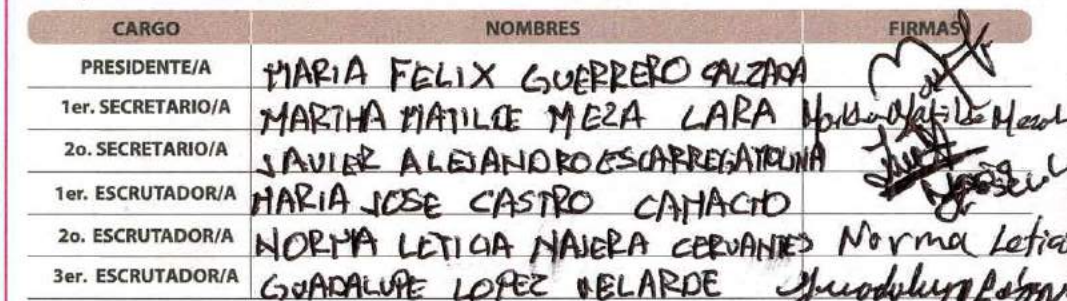 CARGO NOMBRES FIRMAS
PRESIDENTE/A MARIA FELIX GUERRERO CALZADA
1er. SECRETARIO/A MARTHA MATILDE MEZA LARA Martha Matilde Meza L
2o. SECRETARIO/A JAVIER ALEJANDRO ESCARREGA MOLINA
1er. ESCRUTADOR/A MARIA JOSE CASTRO CAMACHO
2o. ESCRUTADOR/A NORMA LETICIA NAJERA CERVANTES Norma Leticia
3er. ESCRUTADOR/A GUADALUPE LOPEZ VELARDE